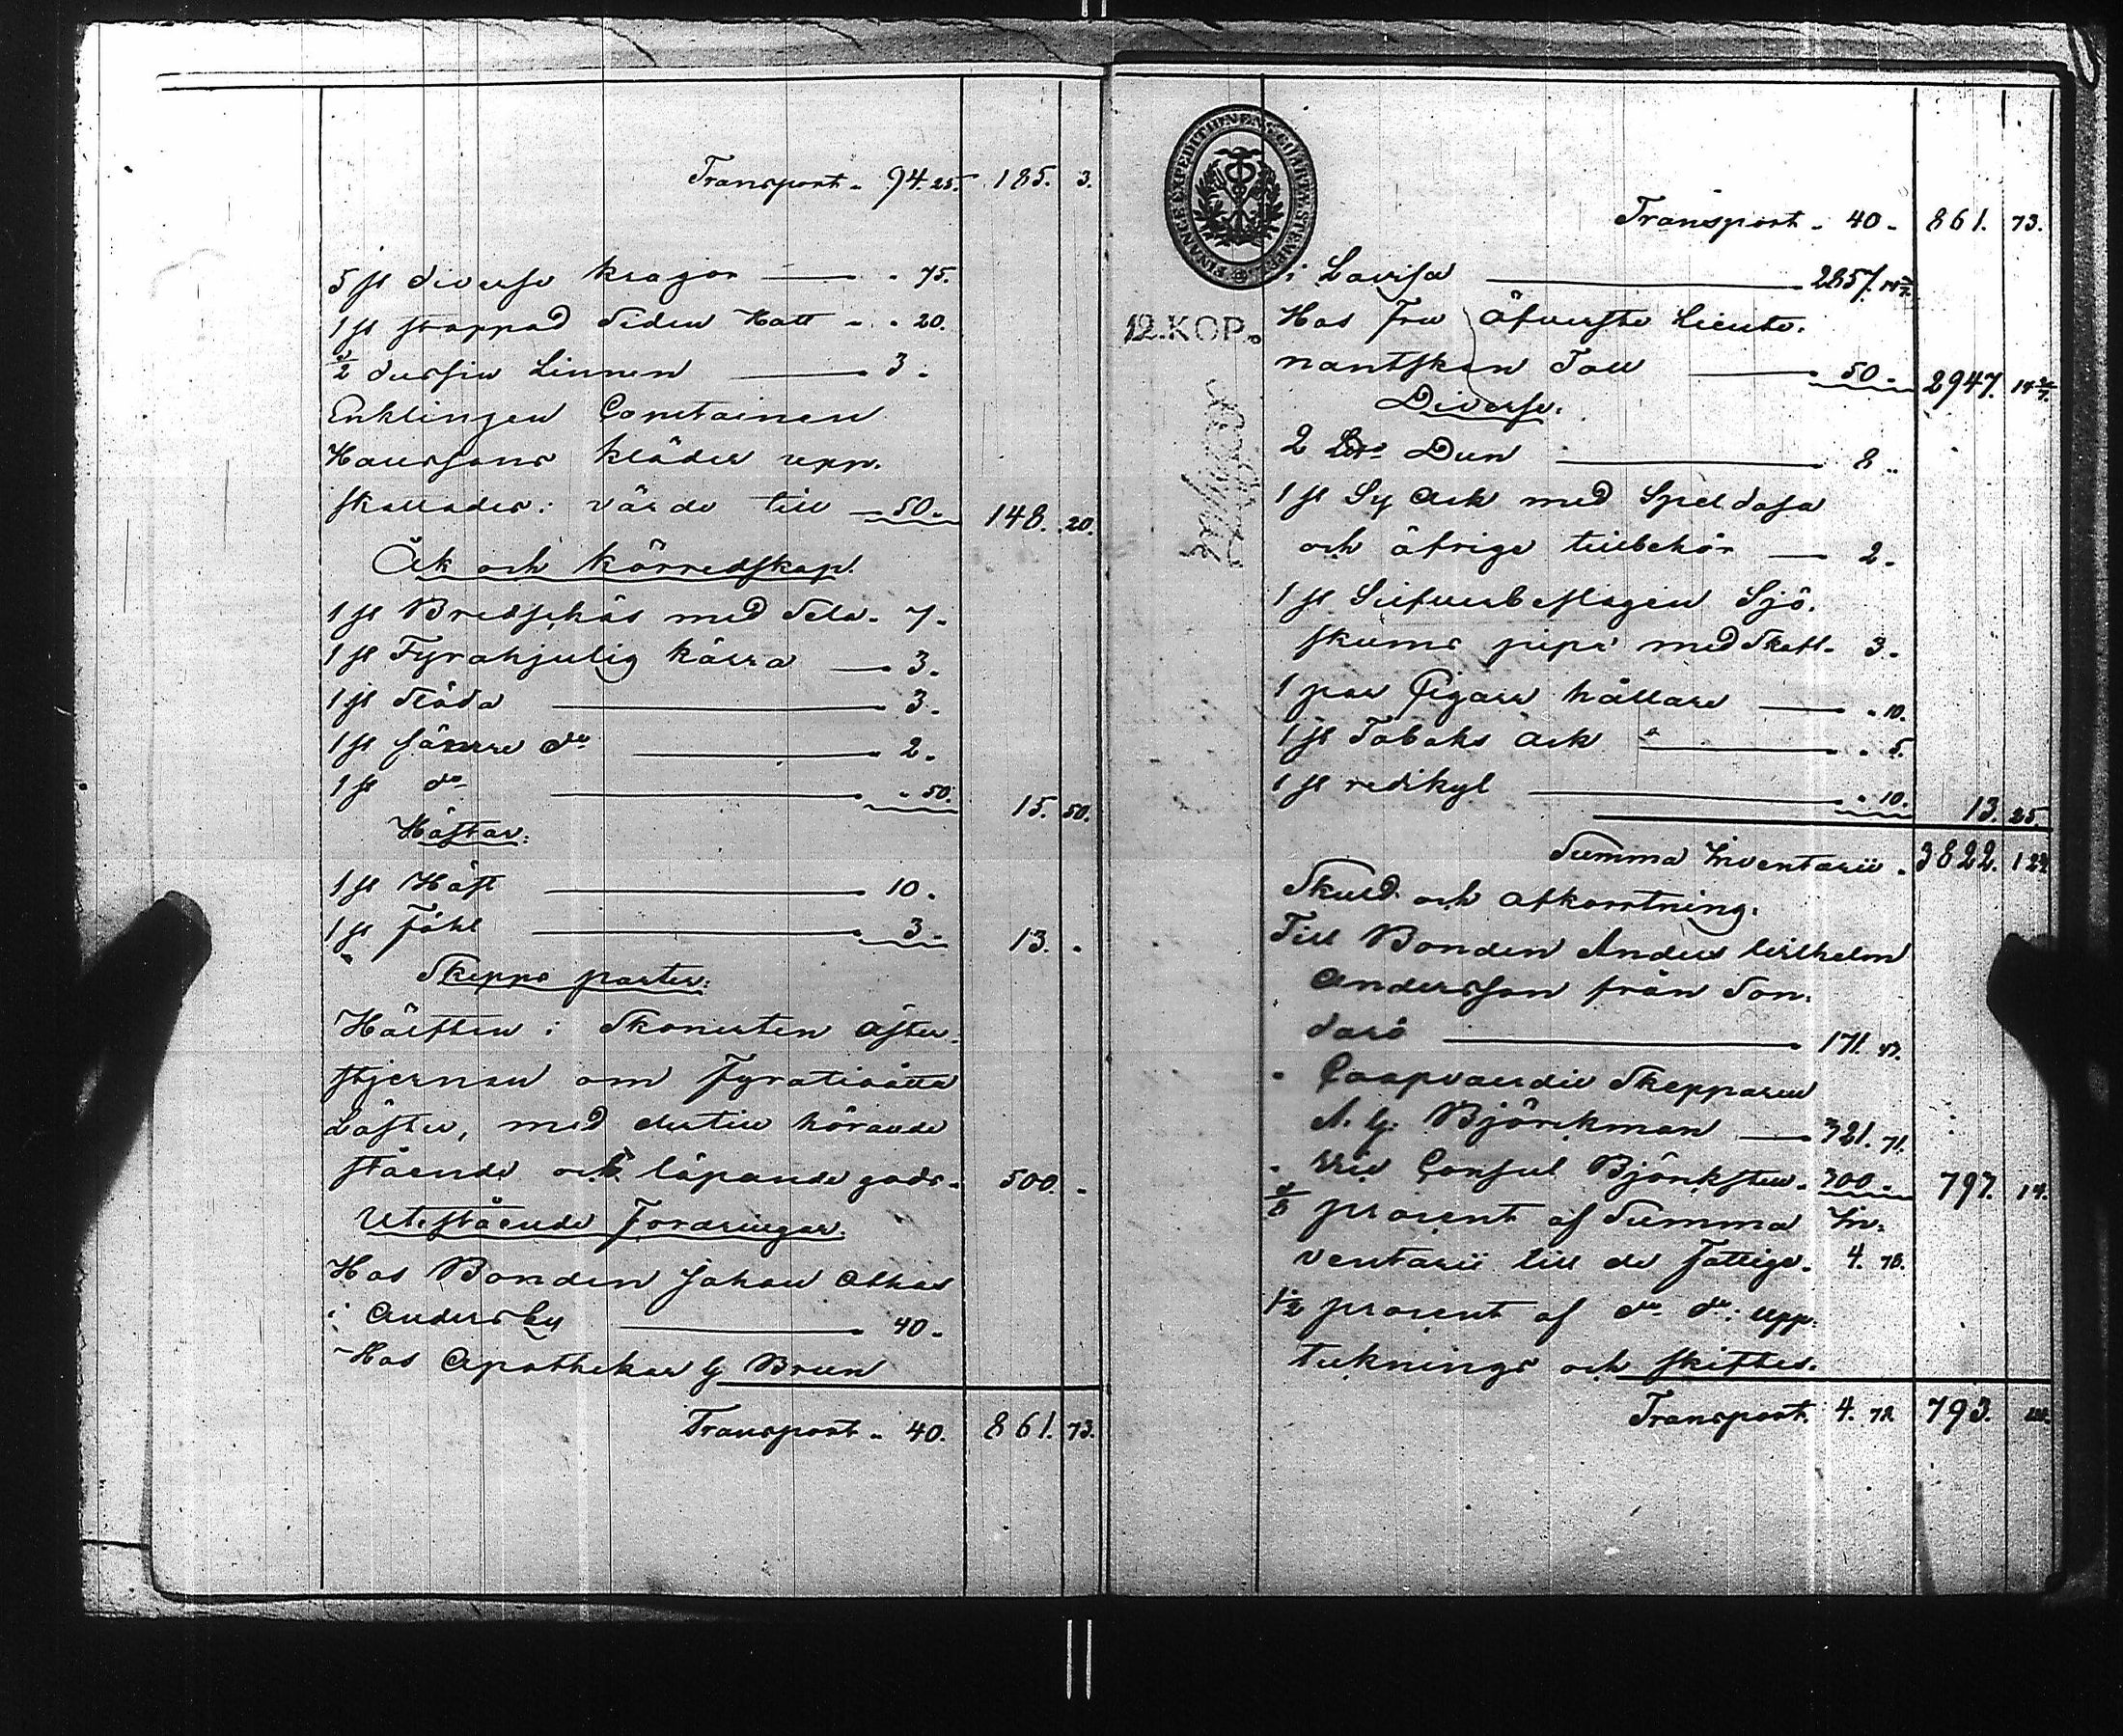 Transport . 94. 25. 185. 3.
5 st diverse kragor — . 75.
1 st stoppad Siden Hatt . . 20.
1/2 dussin Linnen — 3 .
Enklingen Capitainen
Hanssons kläder upp.
skattades: värde till — 50. 148. 20.
Åk och körredskap.
1 st Bredschäs med Sela . 7 .
1 st Fyrahjulig kärra — 3 .
1 st Släda — 3 .
1 st sämre do — 2 .
1 st do — . 50. 15. 50.
Hästar:
1 st Häst — 10 .
1 st Fåhl — 3 . 13. .
Skepps parter:
Hälften i Skonerten After
stjernan om Fyratioåtta
Läster, med dertill hörande
stående och löpande gods . 500. .
Utestående Fordringar.
Hos Bonden Johan
i Andersby — 40 .
Hos Apothekar G Brun
Transport . 40. 861. 73.
FINANCE EXPEDITIONENS CHARTÆ STEMPEL
12.KOP.
Transport . 40 . 861. 73.
i Lovisa — 2857.
Hos Fru Öfverste Lieute.
nantskan Toll — 50 . 2947.
Diverse.
2 Dun — 8 .
1 st Sy Ask med Speldosa
och öfrige tillbehör — 2 .
1 st Silfverbeslagen Sjö.
skums pipa med Skaft . 3 .
1 par Cigarr hållare — . 10.
1 st Tobaks Ask — . 5.
1 st redikyl — . 10. 13. 25.
Summa Inventarii . 3822.
Skuld och afkortning.
Till Bonden Anders Wilhelm
Andersson från Son.
darö — 171. 43.
" Coopvaerdie Skepparen
A. G. Björkman — 321. 71.
" Vice Consul Björksten . 300 . 793. 14.
procent af Summa In.
ventarii till de Fattige . 4. 78.
1 1/2 procent af do do: upp.
teknings och skiftes.
Transport . 4. 78 793.